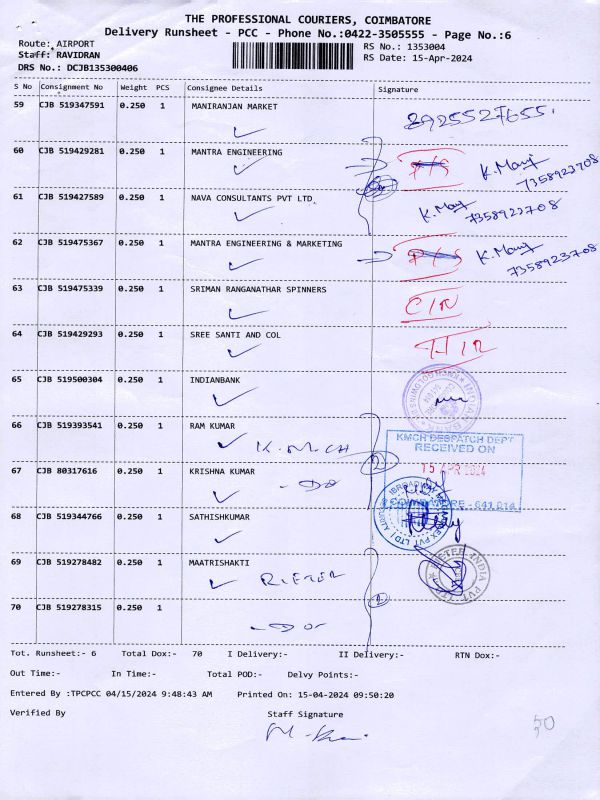 THE PROFESSIONAL COURIERS, COIMBATORE
Delivery Runsheet - PCC - Phone No.:0422-3505555 - Page No.:6
Route: AIRPORT
RS No.: 1353004
Staff: RAVIDRAN
RS Date: 15-Apr-2024
DRS No.: DCJB135300406
S No Consignment No Weight PCS Consignee Details Signature
59 CJB 519347591 0.250 1 MANIRANJAN MARKET
60 CJB 519429281 0.250 1 MANTRA ENGINEERING K. Mani
7358923708
61 CJB 519427589 0.250 1 NAVA CONSULTANTS PVT LTD K. Mani
7358923708
62 CJB 519475367 0.250 1 MANTRA ENGINEERING & MARKETING K. Mani
7358923708
63 CJB 519475339 0.250 1 SRIMAN RANGANATHAR SPINNERS
64 CJB 519429293 0.250 1 SREE SANTI AND COL
65 CJB 519500304 0.250 1 INDIANBANK
66 CJB 519393541 0.250 1 RAM KUMAR
K.M.CH
KMCH DESPATCH DEPT
RECEIVED ON
15 APR 2024
COIMBATORE - 641 014
67 CJB 80317616 0.250 1 KRISHNA KUMAR
- Do
68 CJB 519344766 0.250 1 SATHISHKUMAR
69 CJB 519278482 0.250 1 MAATRISHAKTI
RIETER
70 CJB 519278315 0.250 1
- Do -
Tot. Runsheet:- 6 Total Dox:- 70 I Delivery:- II Delivery:- RTN Dox:-
Out Time:- In Time:- Total POD:- Delvy Points:-
Entered By :TPCPCC 04/15/2024 9:48:43 AM Printed On: 15-04-2024 09:50:20
Verified By Staff Signature